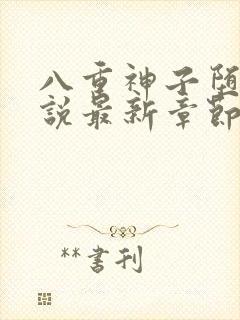 八重神子堕
说最新章節
**書刊